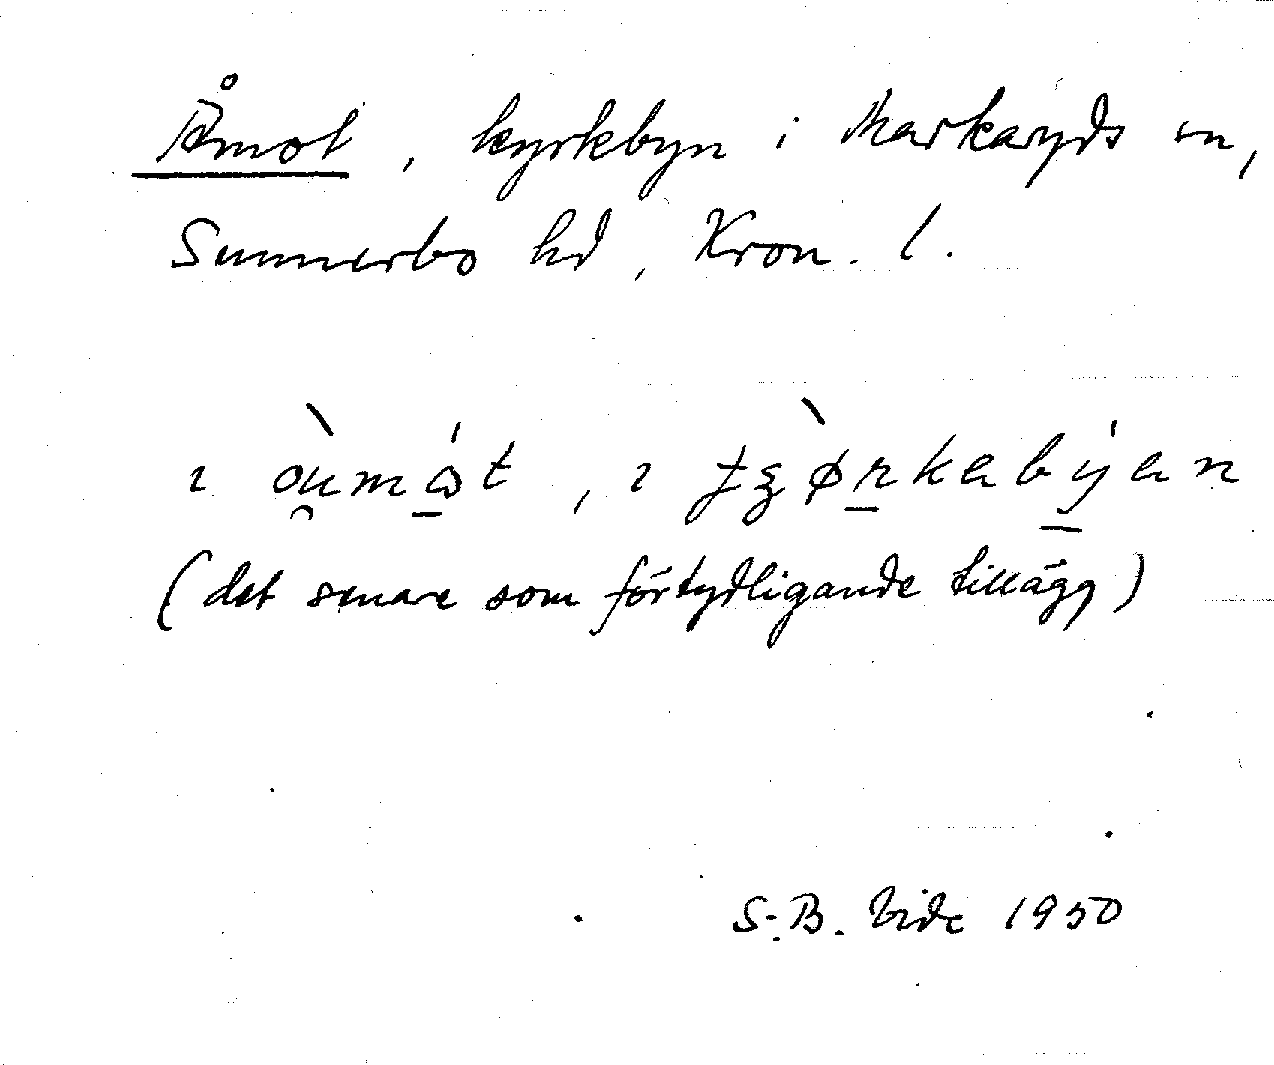 Åmot, kyrkbyn i Markaryds sn,
Sunnerbo hd, Kron. l.
ɩ òu̯mǻ̱t, ɩ ɟʒø̀ṟkabý̱an
(det senare som förtydligande tillägg)
S.-B. Vide 1950